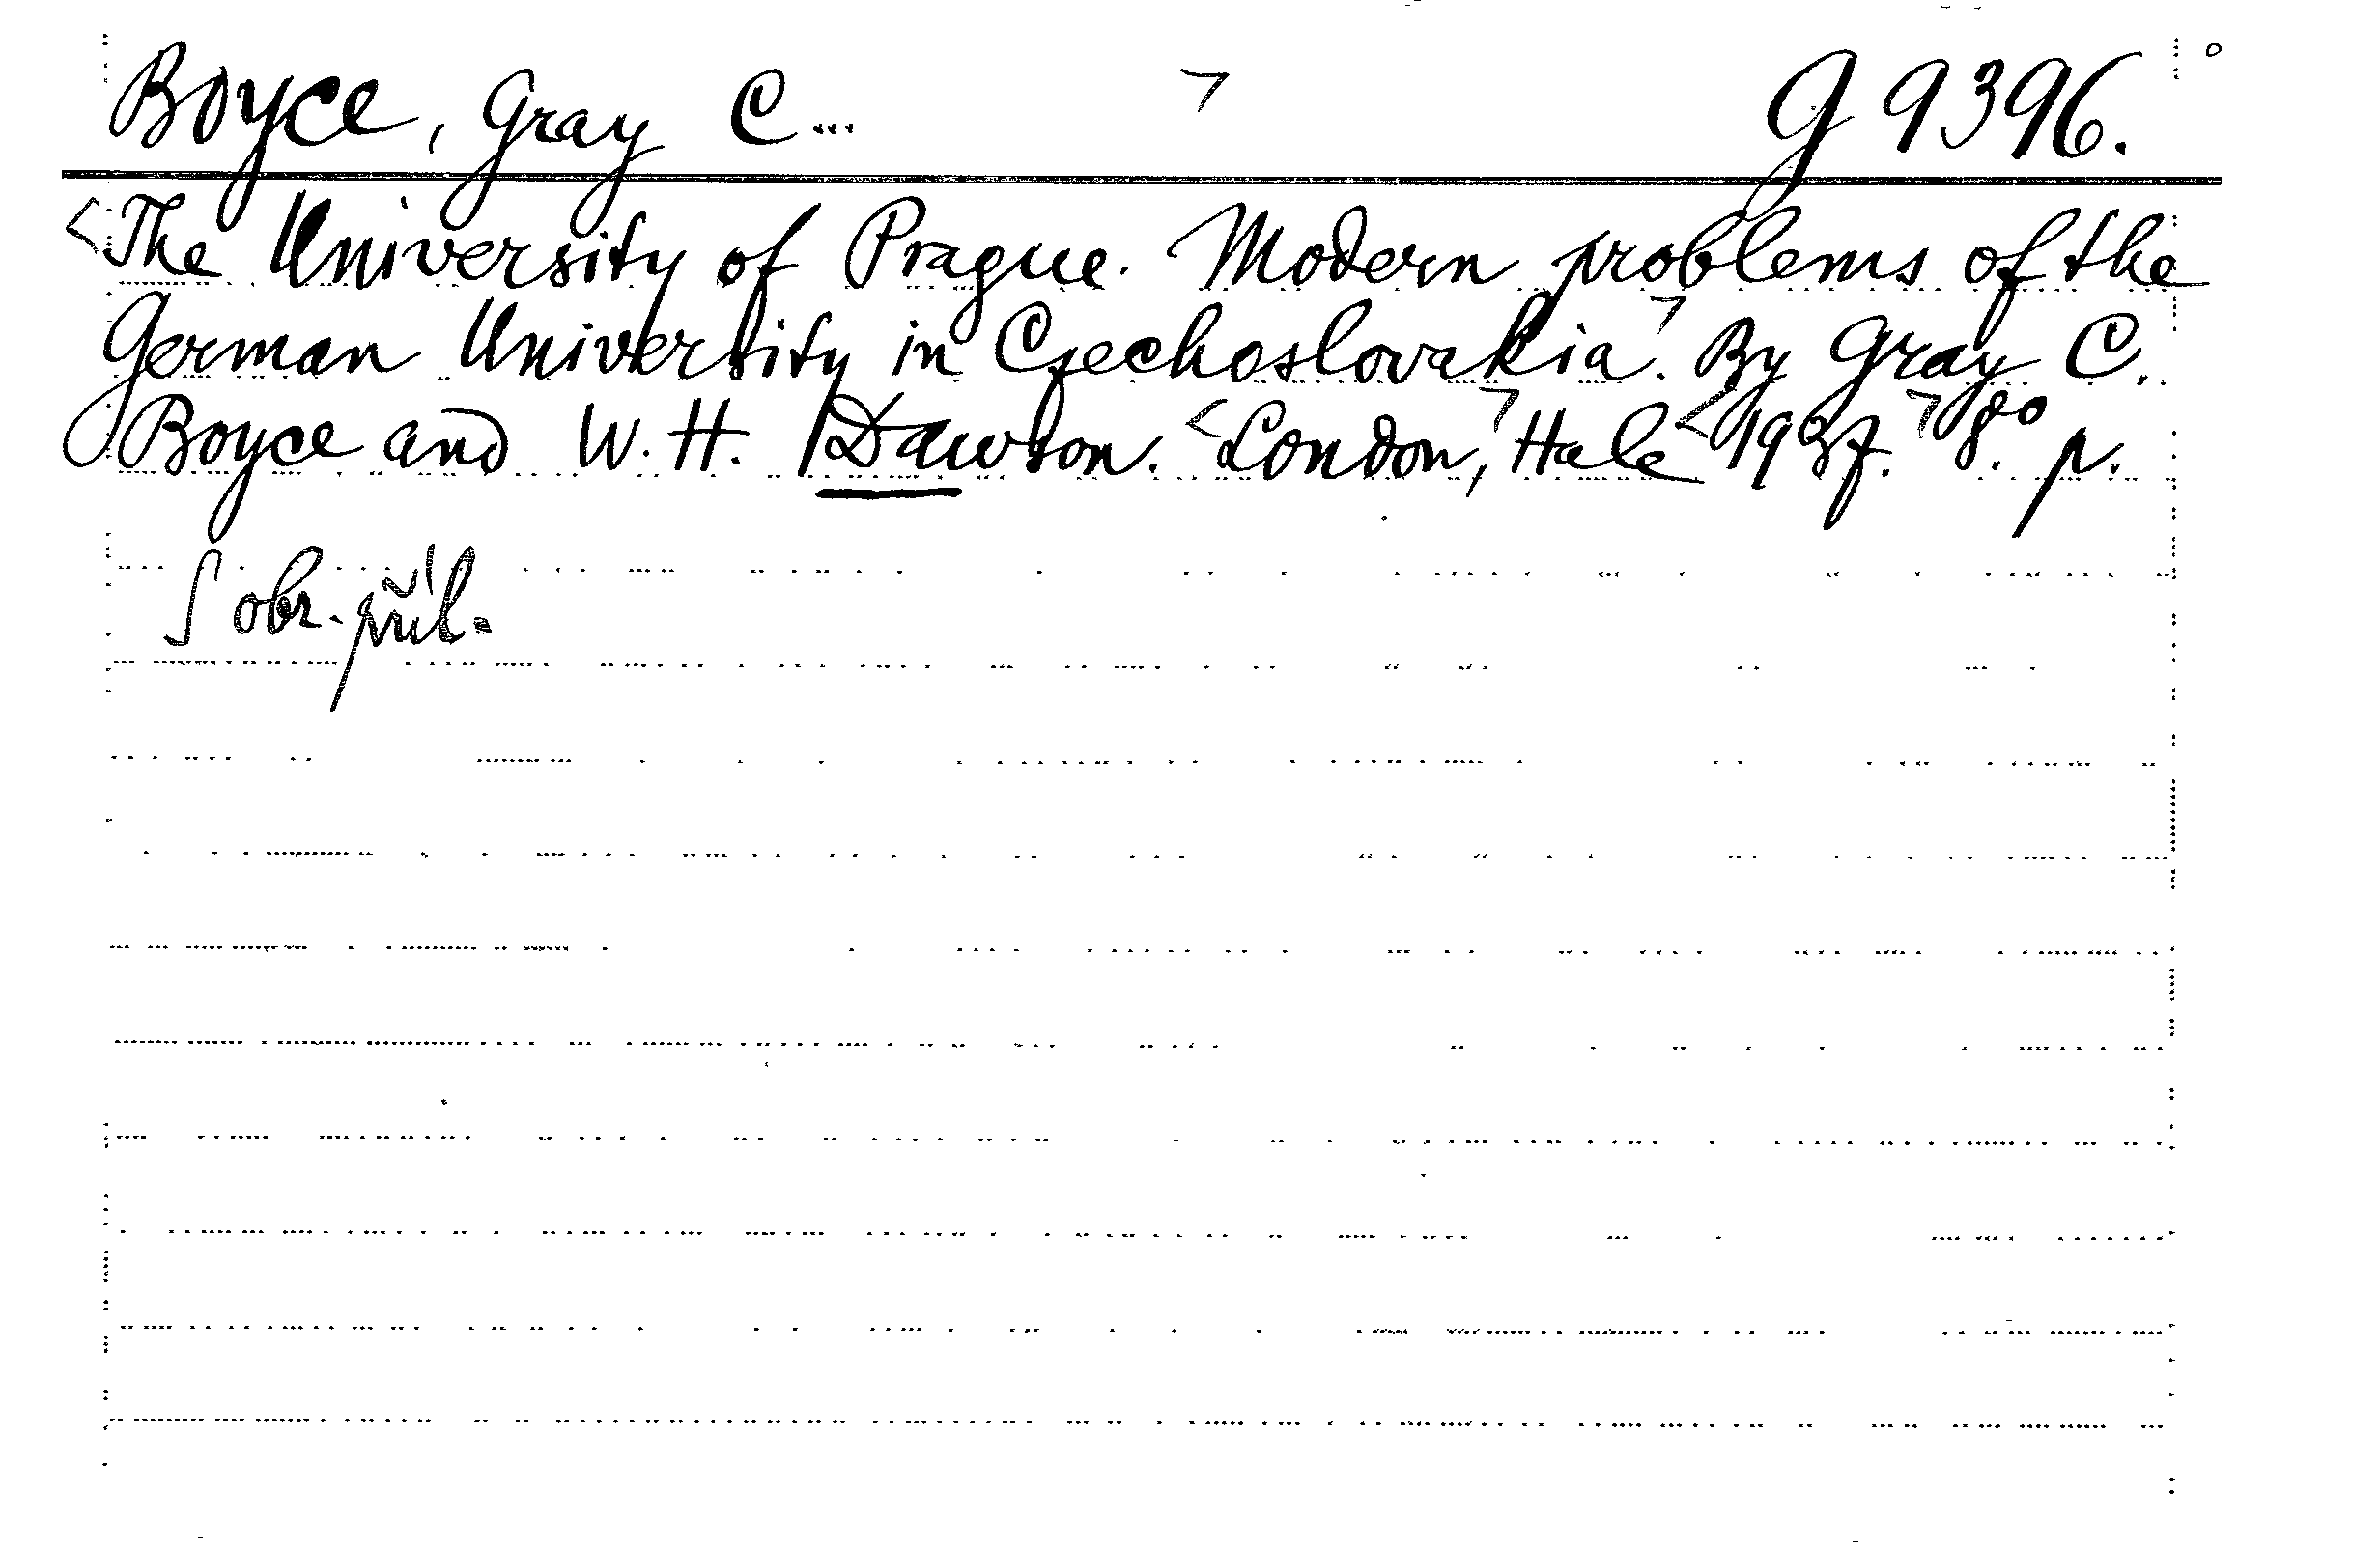 Boyce, Gray C... G 9396.
The University of Prague. Modern problems of the
German University in Czechoslovakia. By Gray C.
Boyce and W. H. Dawson. London, Hale 1937. 8° p.
S obr. příl.